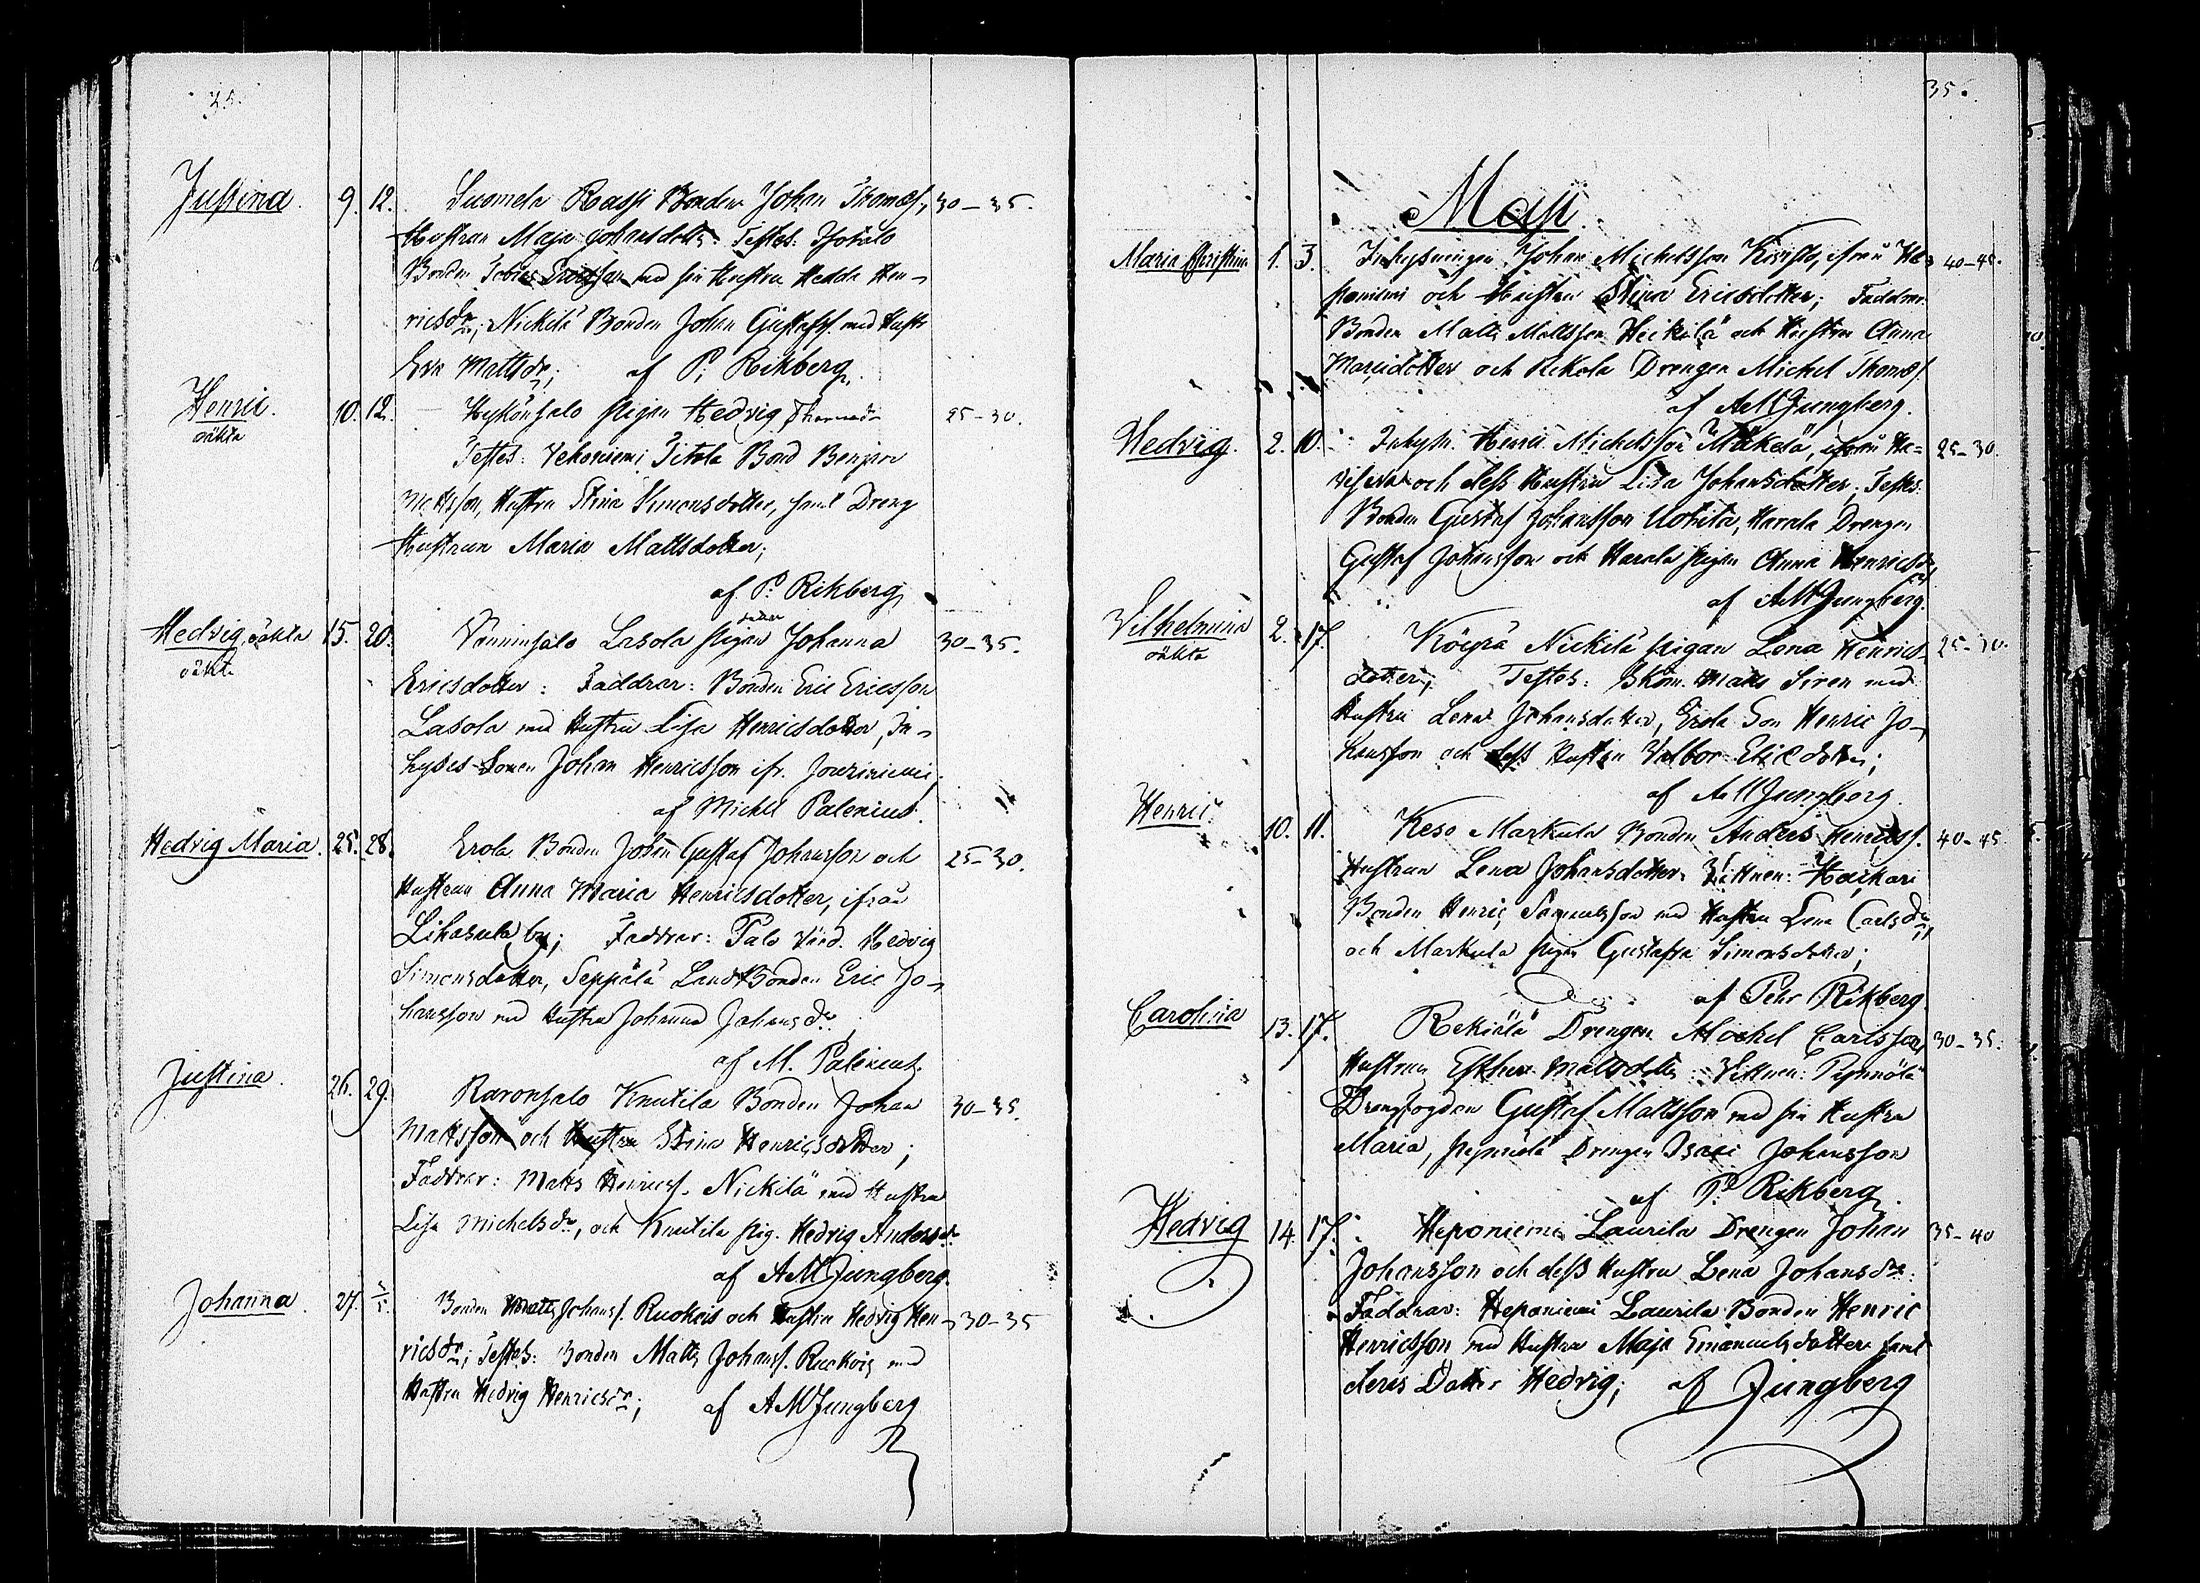 35.
Justina. 9. 12. Suomela Rassi Bonden Johan Thomæs. 30-35.
Hustrun Maja Johansdotter. Testes:
Bonden Tobias med sin Hustru Hedda Hen-
ricsdr; Nickilä Bonden Johan Gustafss. med Hustr
Eva Mattsdr; af P. Rikberg.
Henric. oäkta 10. 12. pigan Hedvig Thomasdr 25-30.
Testes: Bond
Mattsson, Hustru Stina Simonsdotter, samt Dreng
Hustrun Maria Mattsdotter;
af P. Rikberg
Hedvig, oäkta 15. 20. Lasola pigan Johanna 30-35.
oäkta
Ericsdotter: Faddrar: Bonden Eric Ericsson
Lasola med Hustru Lisa Henricsdotter, In-
hyses-Sonen Johan Henricsson ifr.
af Michel Palenius.
Hedvig Maria. 25. 28. Erola Bonden Johan Gustaf Johansson och 25-30.
Hustrun Anna Maria Henricsdotter, ifrån
by; Faddrar: Palo Värd. Hedvig
Simonsdotter, Seppälä LandBonden Eric Jo-
hansson med Hustru Johanna Johansdr
af M. Palenius.
Justina. 26. 29. Knutila Bonden Johan 30-35.
Mattsson och Hustru Stina Henricsdotter;
Faddrar: Matts Henricss. Nickilä med Hustru
Lisa Michelsdr, och Knutila pig. Hedvig Andersdr
af AMJungberg.
Johanna. 27. 2/5. Bonden Matts Johanss. Ruokois och Hustru Hedvig Hen- 30-35
ricsdr; Testes: Bonden Matts Johanss. Ruokois med
Hustru Hedvig Henricsdr; af AMJungberg
35.
Maji.
Maria Christina 1. 3. Inhysningen Johan Michelsson ifrån He- 40-45.
poniemi och Hustru Stina Ericsdotter; Faddrar:
Bonden Matts Mattsson Heickilä och Hustru Anna
och Rekola Drengen Michel Thomæs.
af AMJungberg.
Hedvig. 2. 10. Inhys. Henric Michelsson Mäkelä, ifrån
och dess Hustru Lisa Johansdotter; Testes: 25-30.
Bonden Gustaf Johansson Uotila, Harala Drengen
Gustaf Johansson och Harala pigan Anna Henricsdr
af AMJungberg.
Vilhelmina oäkta 2. 17. Nickilä pigan Lena Henrics- 25-30.
dotter; Testes: Skom. Matts Siren med
Hustru Lena Johansdotter, Erola Son Henric Jo-
hansson och dess Hustru Valbor
af AMJungberg.
Henric. 10. 11. Keso Markula Bonden Anders Henricss. 40-45
Hustrun Lena Johansdotter. Vittnen:
Bonden Henric Samuelsson med Hustru Lena Carlsdr,
och Markula pigan Gustafva Simonsdotter;
af Pehr Rikberg.
Carolina 13. 17. Rekiälä Drengen Michel Carlsson, 30-35.
Hustrun Esther Mattsdotter Vittnen:
Drengfogden Gustaf Mattsson med sin Hustru
Maria, Drengen Isaac Johansson
af P. Rikberg.
Hedvig 14. 17. Heponiemi Laurila Drengen Johan 35-40
Johansson och dess Hustru Lena Johansdr:
Faddrar: Heponiemi Laurila Bonden Henric
Henricsson med Hustru Maja Emanuelsdotter samt
deras Dotter Hedvig; af Jungberg